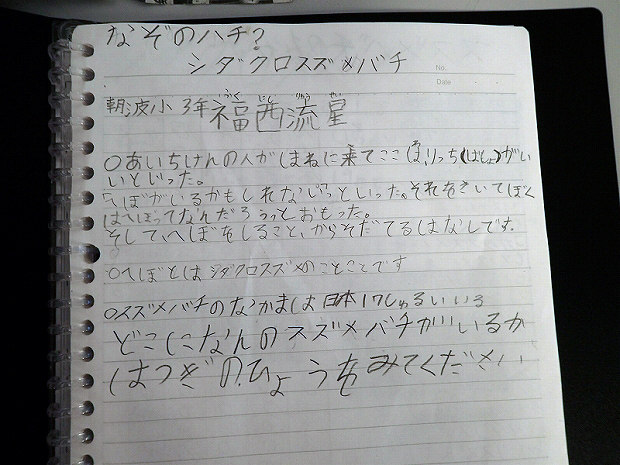 なぞのハチ?
シダクロスズメバチ
No.
Date
朝波小 3年 福西流星
ふく にし りゅう せい
○あいちけんの人がはねに来てここは、りっち(ばしょ)がい
いといった。
「へぼがいるかもしれない」といった。それをきいてぼく
は「へぼってなんだろうっとおもった。
そして、へぼをしること、からそだてるはなしです.
○へぼとはシダクロスズメのことことです
○スズメバチのなかまは日本17しゅるいいる
どこになんのスズメバチがいるか
はつぎのひょうをみてください